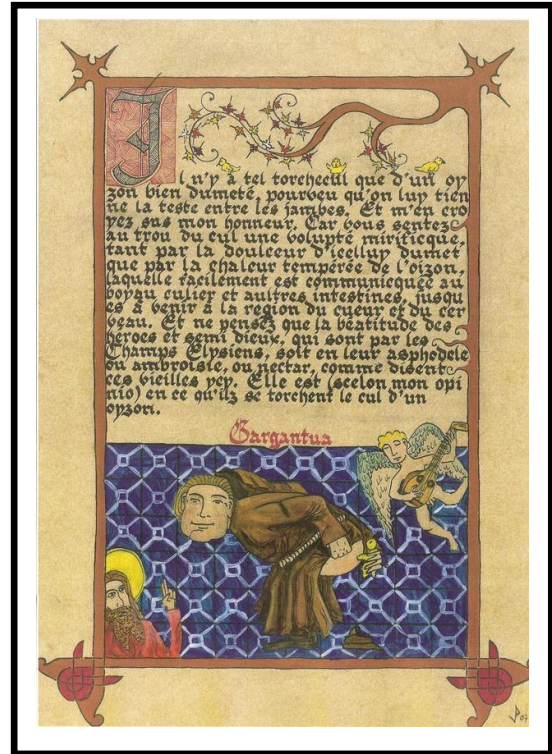 Il n'y a tel torchecul que d'un oy
zon bien dumeté, pourveu qu'on luy tien
ne la teste entre les jambes. Et m'en cro
yez sus mon honneur. Car vous sentez
au trou du cul une volupté mirificque,
tant par la doulceur d'icelluy dumet
que par la chaleur tempérée de l'oizon,
laquelle facilement est communicquée au
boyau culier et aultres intestines, jusqu
es à venir à la region du cueur et du cer
veau. Et ne pensez que la béatitude des
heroes et semi dieux, qui sont par les
Champs Elysiens, soit en leur asphodele
ou ambroisie, ou nectar, comme disent
ces vieilles ycy. Elle est (scelon mon opi
nio) en ce qu'ilz se torchent le cul d'un
oyzon.
Gargantua